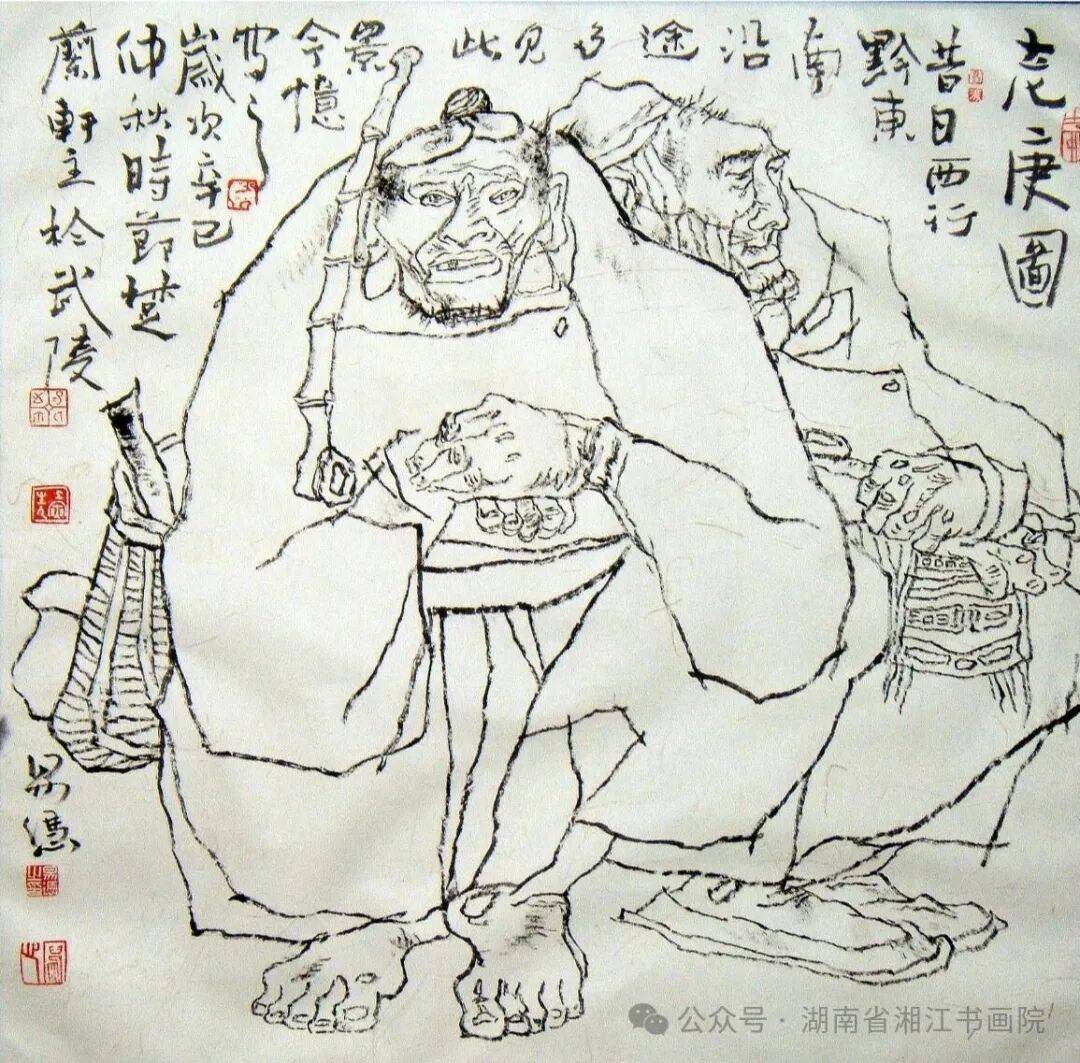 老庚圖
昔日西行
黔東
南沿途多見此
景
今憶
寫之
歲次辛巳
仲秋時節楚
蘭軒主於武陵
易憑
公众号 · 湖南省湘江书画院